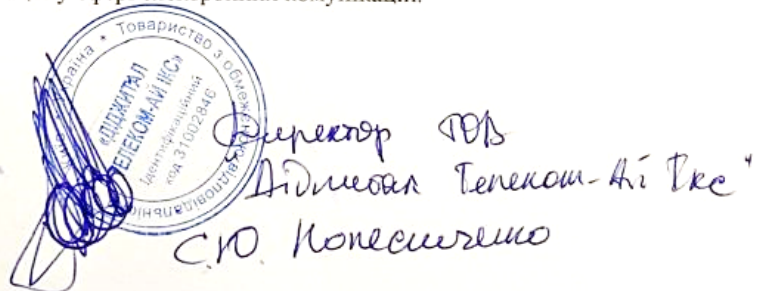 комунікацій.
Україна * Товариство з обмеженою відповідальністю
«ДІДЖИТАЛ
ТЕЛЕКОМ-АЙ ІКС»
Ідентифікаційний
код 31002846
Директор ТОВ
Діджитал Телеком-Аі Ікс"
С.Ю.